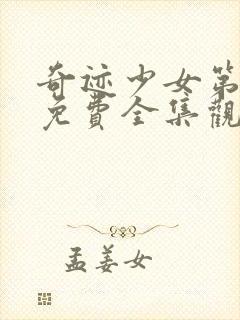 奇迹少女第
免費全集觀
孟姜女